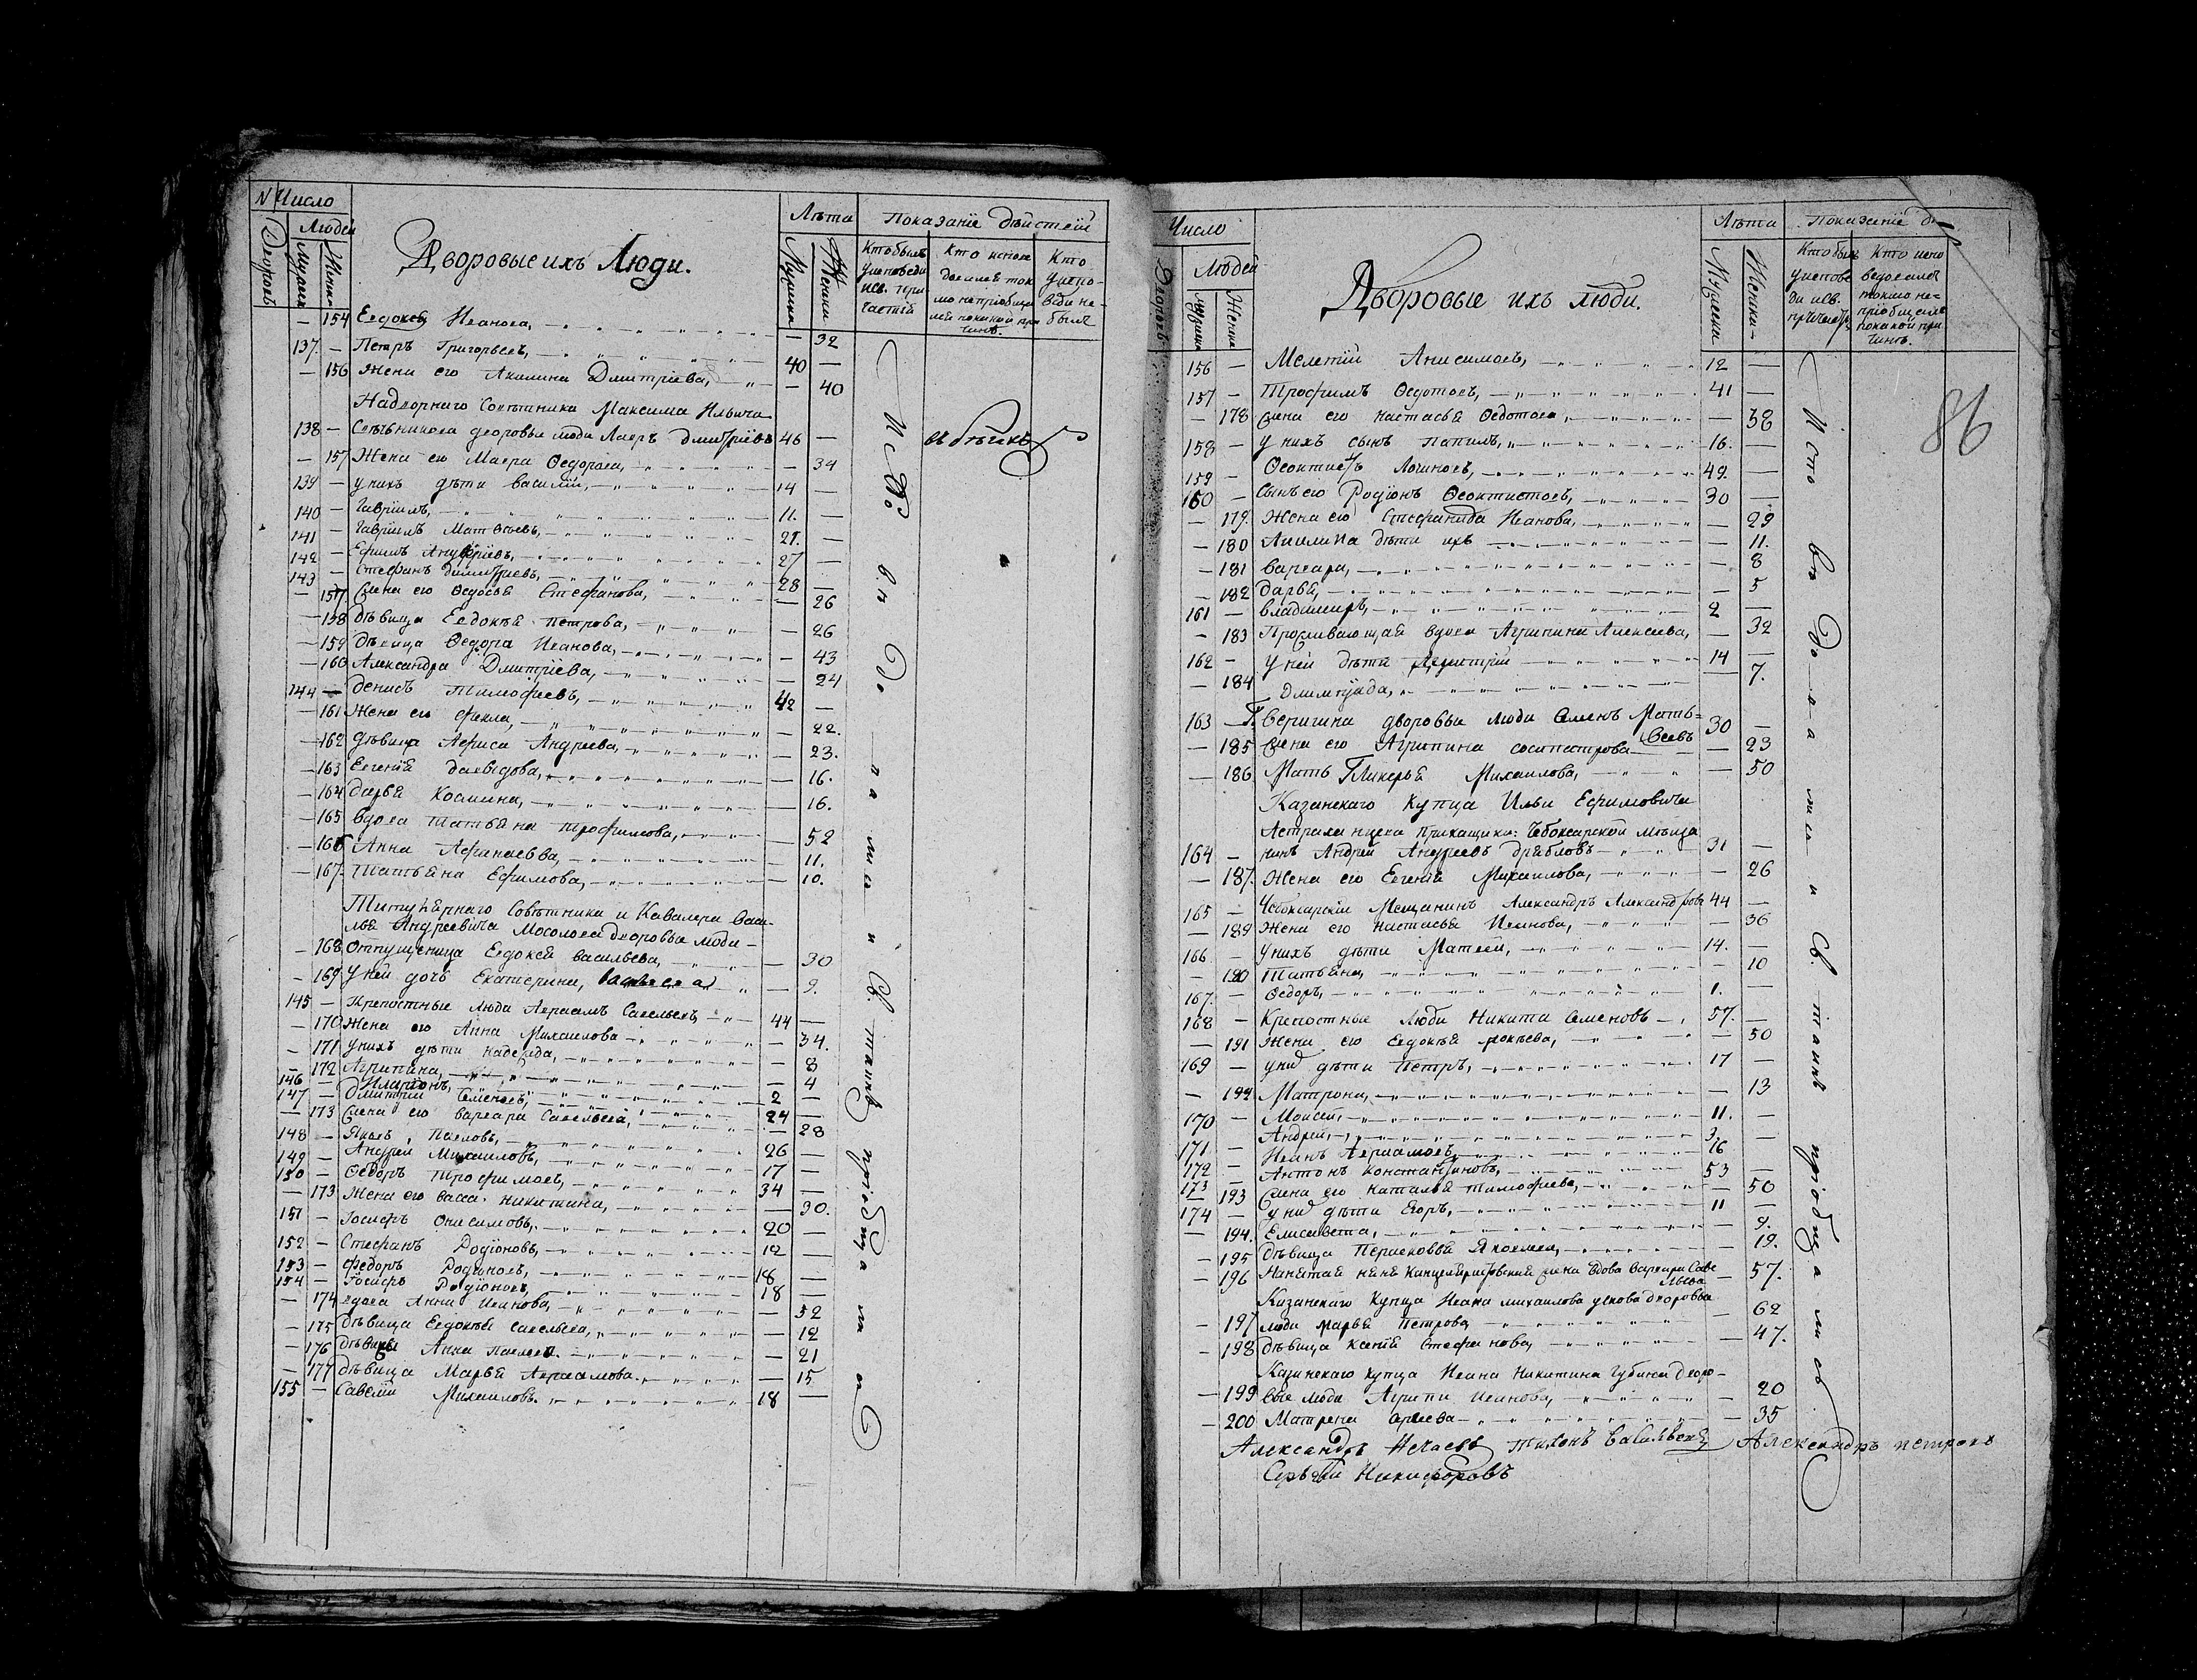 № Число
Людей
Дворовъ
Мужеск
Женска
Дворовые ихъ Люди.
Лѣта
Мужеска
Женски
Показанїе дѣйствїй
Кто былъ у исповѣди и св. причастїя
Кто исповѣдался токмо не прїобщился и по какой причинѣ.
Кто у исповѣди не былъ
— 154 Евдокея Иванова, — 32
137. — Петръ Григорьевъ, 40 —
— 156 Жена его Акилина Дмитрїева, — 40
Надворнаго Совѣтника Максима Ильича
138 — дворовые люди Лавръ Дмитрїевъ 46 — въ бѣгахъ
— 157 Жена его Мавра Ѳедорова, — 34
139 — у нихъ дѣти Василїй, 14 —
140 — Гаврїилъ, 11. —
141 — Гаврїилъ Матѳѣевъ, 21. —
142 — Ефимъ Ануфрїевъ, 27 —
143 — Стефанъ Димитрїевъ, 28 —
— 157 Жена его Ѳедосья Стефанова, — 26
— 158 Дѣвица Евдокѣя Петрова, — 26
— 159 Дѣвица Ѳедора Иванова, — 43
— 160 Александра Дмитрїева, — 24
144 — Денисъ Тимофѣевъ, 42 —
— 161 Жена его Фекла, — 22.
— 162 Дѣвица Андреева, — 23.
— 163 Евгенїя Давыдова, — 16.
— 164 Дарья Косьмина, — 16.
— 165 Вдова Татьяна Трофимова, — 52
— 166 Анна Афанасьева, — 11.
— 167. Татьяна Ефимова, — 10.
Титулярнаго Совѣтника и Кавалера Васи-
лья Андреевича Мосолова дворовые люди —
— 168 Отпущеница Евдокея Васильева, — 30
— 169 У ней дочь Екатерина, — 9.
145 — Крепостные люди Авраамъ Савельевъ 44 —
— 170 Жена его Анна Михаилова — 34.
— 171 у нихъ дѣти Надежда, — 8
— 172 Агрипина, — 4
146 — Иларїонъ, 2 —
147 — Дмитрїй Семеновъ, 24 —
— 173 Жена его Варвара Савельева, — 28
148 — Яковъ Павловъ, 26 —
149 — Андрей Михаиловъ, 17 —
150 — Ѳедоръ Трофимовъ, 34 —
— 173 Жена его Васса Никитина, — 30.
151 — Іосифъ Онисимовъ, 20 —
152 — Стефанъ Родїоновъ, 12 —
153 — Федоръ Родионовъ, 18 —
154 — Іосифъ Родїоновъ, 18 —
— 174 вдова Анна Иванова, — 52
— 175 Дѣвица Евдокѣя Савельева, — 12
— 176 Дѣвица Анна Павлова. — 21
— 177 Дѣвица Марья Авраамова. — 15
155 — Савелїй Михаиловъ. 18 —
Исто въ До-о-а ми и Св. таинъ прїобща ми съ
Число
Людей
Дворовъ
мужеска
Женска
Дворовые ихъ люди.
Лѣта
Мужески
Женски
Показанїе д
Кто былъ у исповѣди и св. причастїя
Кто исповедосался токмо не прїобщился и по какой причинѣ.
86
156 — Мелетїй Анисимовъ, 12 —
157 — Трофимъ Ѳедотовъ, 41 —
— 178 Жена его Настасья Ѳедотова, — 38
158 — у нихъ сынъ 16. —
159 — Ѳеоктистъ Логиновъ, 49. —
160 — Сынъ его Родїонъ Ѳеоктистовъ, 30 —
— 179. Жена его Стефанида Иванова, — 29
— 180 Акилина дѣти ихъ — 11.
— 181 Варвара, — 8
— 182 Дарья, — 5
161 — Владимиръ, 2 —
— 183 Проживающая вдова Агрипина Алексеева, — 32
162 — У ней дѣти Димитрїй 14 —
— 184 — 7.
163 — Г. Веригина дворовые люди Семенъ Матв-
ѣевъ 30 —
— 185 Жена его Агрипина Сосипатрова — 23
— 186 Мать Гликерья Михаилова, — 50
Казанскаго Купца Ильи Ефимовича
Астраханцева Прикащикъ: Чебоксарской мѣща
164 — нинъ Андрей Андреевъ Дрябловъ 31 —
— 187. Жена его Евгенїя Михаилова, — 26
165 — Чебоксарскїй Мещанинъ Александръ Александровъ 44 —
— 189 Жена его Настасья Иванова, — 36
166 — У нихъ дѣти Матвей, 14. —
— 190 Татьяна, — 10
167. — Ѳедоръ, 1. —
168 — Крепостные люди Никита Семеновъ 57. —
— 191 Жена его Евдокѣя — 50
169 — у них дѣти Петръ, 17 —
— 192 Матрона, — 13
170 — Моисей, 11. —
171 — Андрей, 3. —
172 — Иванъ Авраамовъ, 16
173 — Антонъ Константиновъ, 53 —
— 193 Жена его Наталья Тимофеева, — 50
174 — у них дѣти Егоръ, 11 —
— 194. Елисавета, — 9.
— 195 Дѣвица Парасковья Яковлева, — 19.
— 196 вдова Варвара Саве
льева — 57.
Казанскаго Купца Ивана Михаилова дворовые
— 197 люди Марья Петрова — 62
— 198 Дѣвица Ксенїя Стефанова, — 47.
Казанскаго Купца Ивана Никитина Губина дворо-
— 199 вые люди Агрипи Иванова, — 20
— 200 Матрена — 35
Александръ Нечаевъ Тихонъ Васильевъ Александръ Петровъ
Сергѣй Никифоровъ